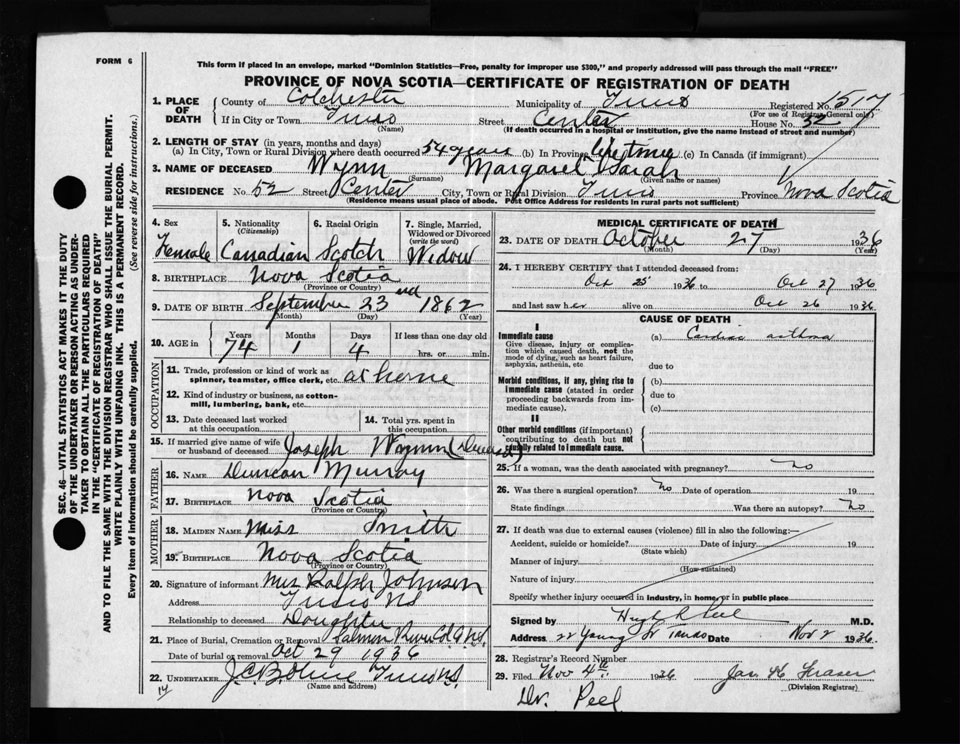 FORM 6
This form if placed in an envelope, marked "Dominion Statistics—Free, penalty for improper use $300," and properly addressed will pass through the mail "FREE"
PROVINCE OF NOVA SCOTIA—CERTIFICATE OF REGISTRATION OF DEATH
1. PLACE OF DEATH County of Colchester Municipality of Truro Registered No. 1517
(For use of Registrar General only)
If in City or Town Truro Street Center House No. 52
(Name) (If death occurred in a hospital or institution, give the name instead of street and number)
2. LENGTH OF STAY (in years, months and days)
(a) In City, Town or Rural Division where death occurred 54 years (b) In Province lifetime (c) In Canada (if immigrant)
3. NAME OF DECEASED Wynn Margaret Sarah
(Surname) (Given name or names)
RESIDENCE No. 52 Street Center City, Town or Rural Division Truro Province Nova Scotia
(Residence means usual place of abode. Post Office Address for residents in rural parts not sufficient)
4. Sex Female
5. Nationality (Citizenship) Canadian
6. Racial Origin Scotch
7. Single, Married, Widowed or Divorced (write the word) Widow
8. BIRTHPLACE Nova Scotia
(Province or Country)
9. DATE OF BIRTH September 23rd 1862
(Month) (Day) (Year)
10. AGE in Years 74 Months 1 Days 4 If less than one day old hrs. or min.
OCCUPATION
11. Trade, profession or kind of work as spinner, teamster, office clerk, etc. at home
12. Kind of industry or business, as cotton-mill, lumbering, bank, etc.
13. Date deceased last worked at this occupation
14. Total yrs. spent in this occupation
15. If married give name of wife or husband of deceased Joseph Wynn (Deceased)
FATHER
16. NAME Duncan Murray
17. BIRTHPLACE Nova Scotia
(Province or Country)
MOTHER
18. MAIDEN NAME Miss Smith
19. BIRTHPLACE Nova Scotia
(Province or Country)
20. Signature of informant Mrs Ralph Johnson
Address Truro NS
Relationship to deceased Daughter
21. Place of Burial, Cremation or Removal Salmon River Col. Co NS
Date of burial or removal Oct 29 1936
22. UNDERTAKER Truro N.S.
(Name and address)
14
MEDICAL CERTIFICATE OF DEATH
23. DATE OF DEATH October 27 1936
(Month) (Day) (Year)
24. I HEREBY CERTIFY that I attended deceased from:
Oct 25 1936 to Oct 27 1936
and last saw her alive on Oct 26 1936
CAUSE OF DEATH
I
Immediate cause (a) Cardiac asthma
Give disease, injury or complication which caused death, not the mode of dying, such as heart failure, asphyxia, asthenia, etc
due to
Morbid conditions, if any, giving rise to immediate cause (stated in order proceeding backwards from immediate cause).
(b)
due to
(c)
II
Other morbid conditions (if important) contributing to death but not causally related to immediate cause.
25. If a woman, was the death associated with pregnancy? no
26. Was there a surgical operation? No Date of operation 19
State findings Was there an autopsy? No
27. If death was due to external causes (violence) fill in also the following:—
Accident, suicide or homicide? Date of injury 19
(State which)
Manner of injury
(How sustained)
Nature of injury
Specify whether injury occurred in industry, in home, or in public place
Signed by Hugh R Peel M.D.
Address 22 Young St Truro Date Nov 2 1936
28. Registrar's Record Number
29. Filed Nov 4th 1936 Fraser
(Division Registrar)
Dr. Peel
SEC. 46—VITAL STATISTICS ACT MAKES IT THE DUTY
OF THE UNDERTAKER OR PERSON ACTING AS UNDER-
TAKER TO OBTAIN ALL THE PARTICULARS REQUIRED
IN THE "CERTIFICATE OF REGISTRATION OF DEATH"
AND TO FILE THE SAME WITH THE DIVISION REGISTRAR WHO SHALL ISSUE THE BURIAL PERMIT.
WRITE PLAINLY WITH UNFADING INK. THIS IS A PERMANENT RECORD.
Every item of information should be carefully supplied. (See reverse side for instructions.)